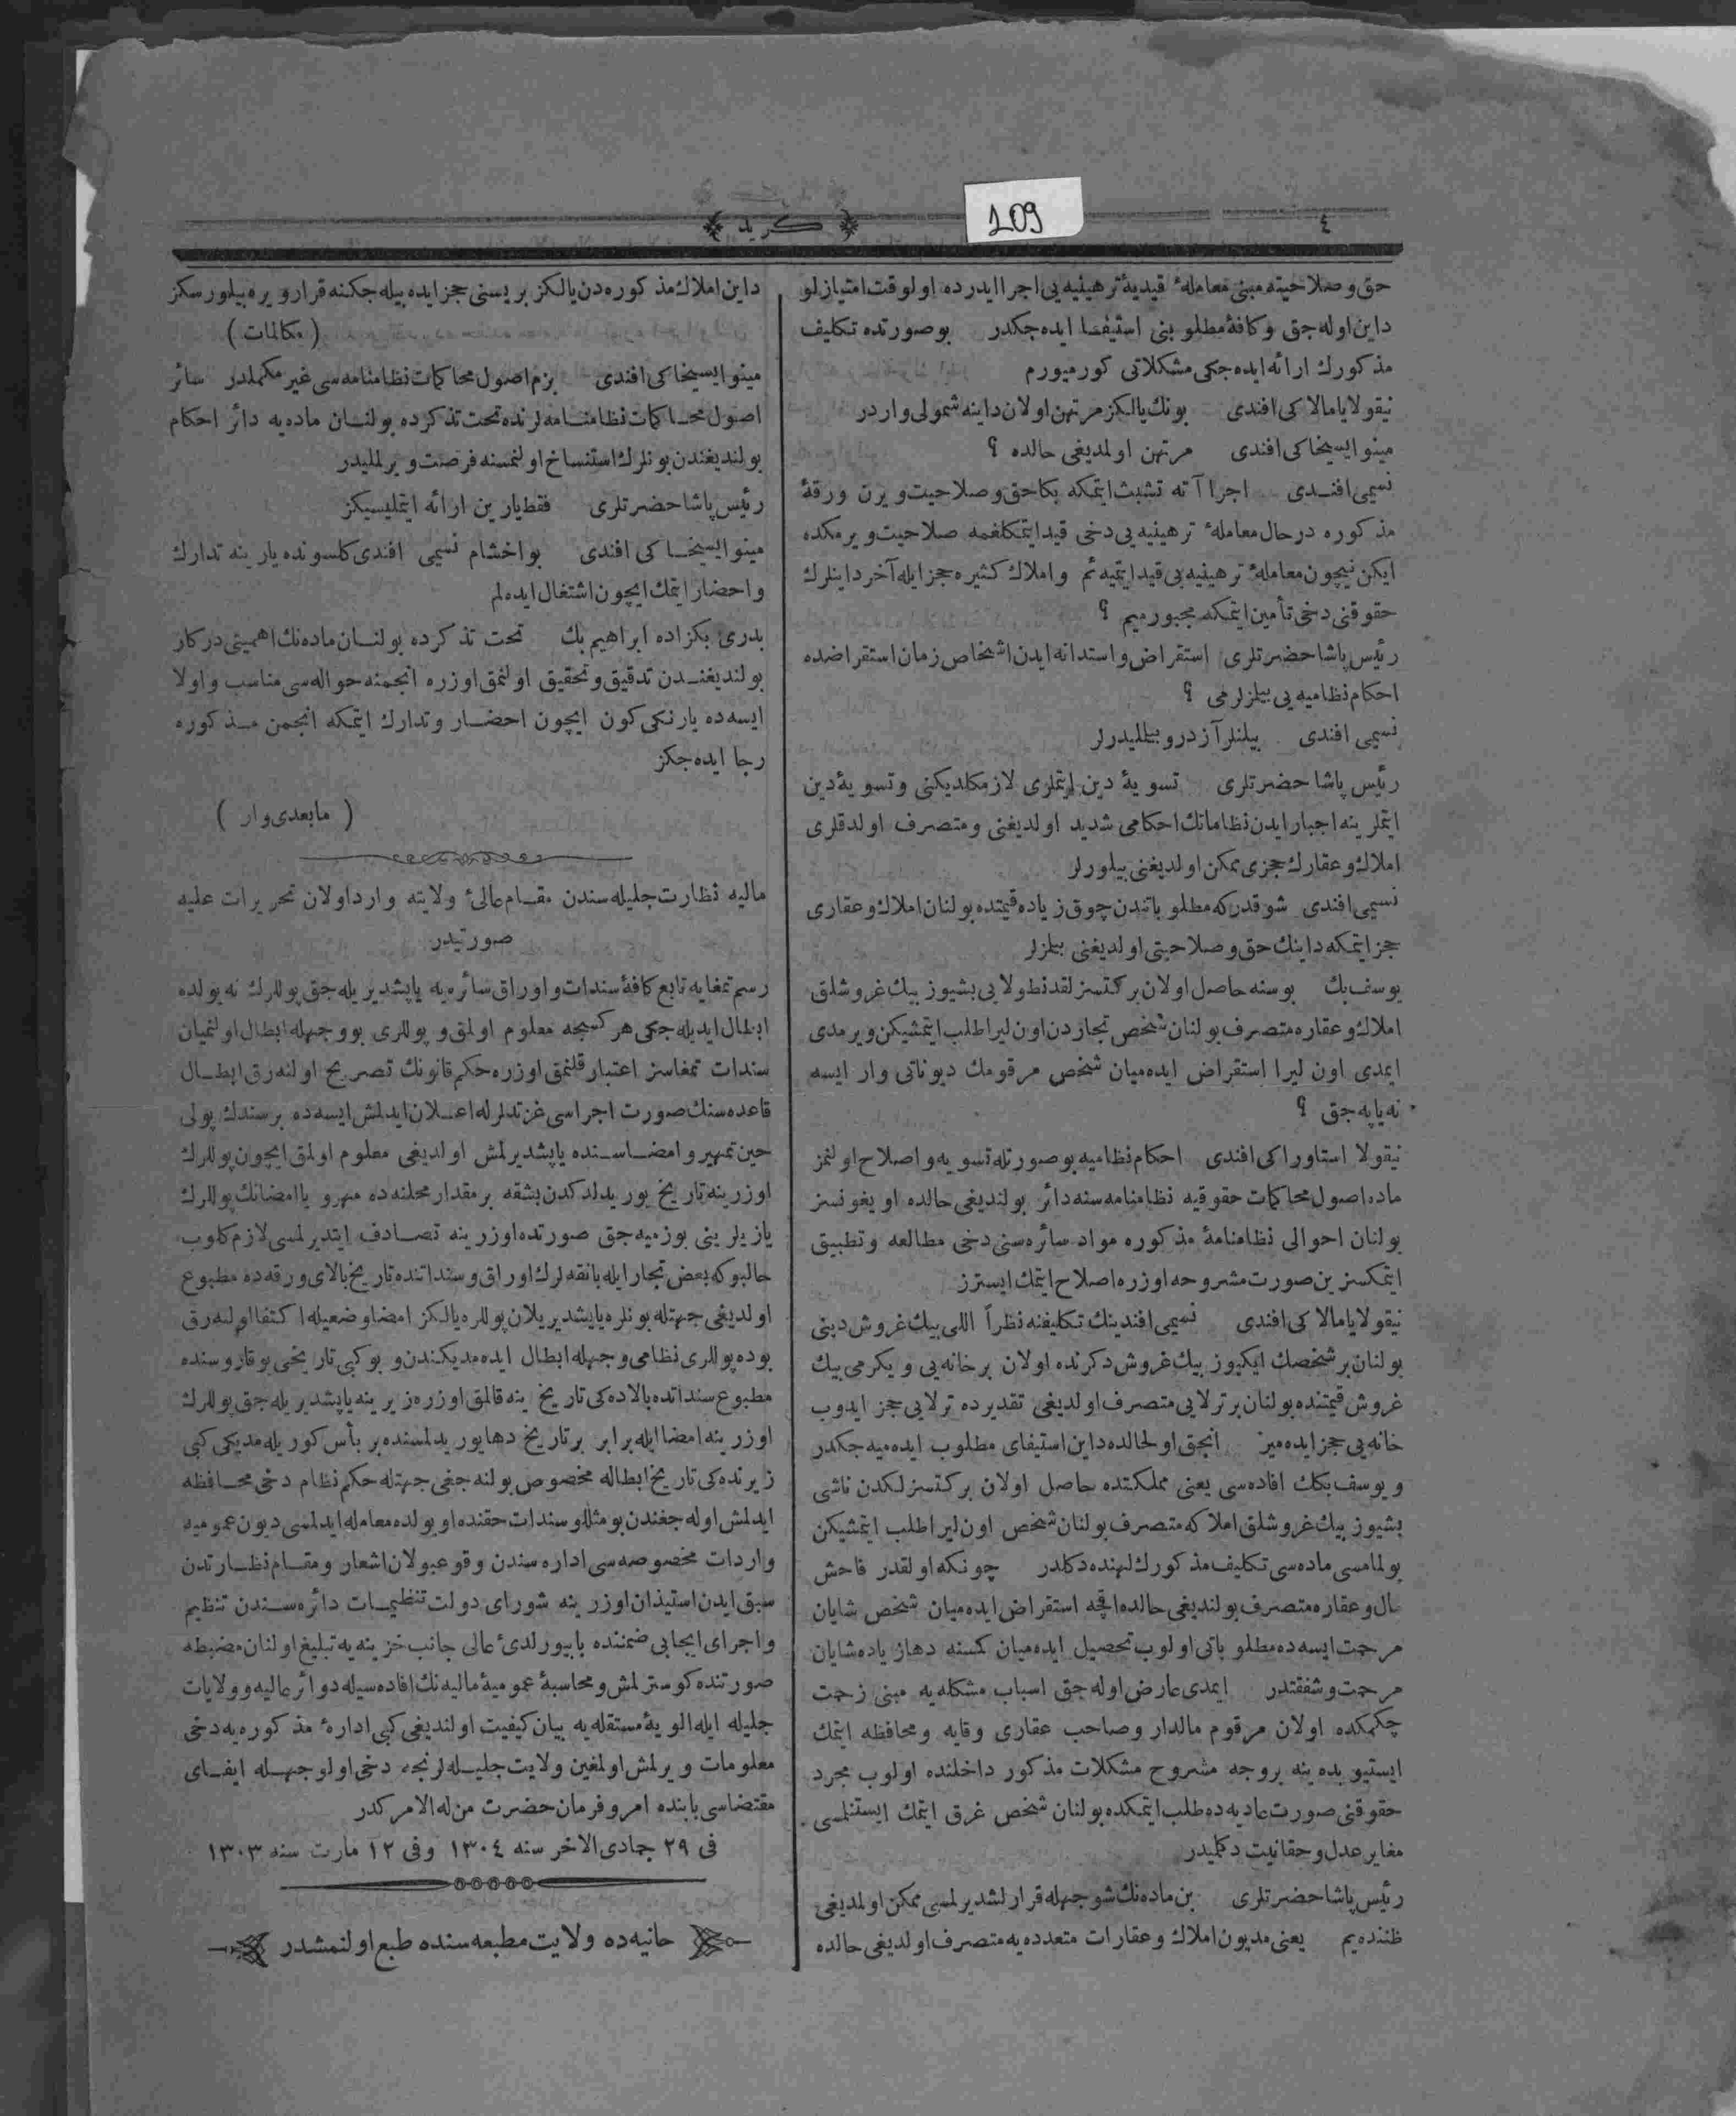 ٤
109
كريد
حق وصلاحيته مبنی معاملهٔ قيديهٔ ترهينيه يی اجرا ايدرده اولوقت امتيازلو
داين اوله جق وكافهٔ مطلوبنی استيفا ايده جكدر بوصورتده تكليف
مذكورك ارائه ايده جكی مشكلاتی كورميورم
نيقولا يامالاكی افندی بونك يالكز مرتهن اولان داينه شمولی واردر
مينو ايسيخاكی افندی مرتهن اولمديغی حالده ؟
نسيمی افندی اجراآته تشبث ايتمكه بكا حق وصلاحيت ويرن ورقهٔ
مذكوره درحال معاملهٔ ترهينيه يی دخی قيد ايتمكلغمه صلاحيت ويرمكده
ايكن نيچون معاملهٔ ترهينيه يی قيد ايتميه ئم واملاك كثيره حجزايله آخر داينلرك
حقوقنی دخی تأمين ايتمكه مجبورميم ؟
رئيس پاشا حضرتلری استقراض واستدانه ايدن اشخاص زمان استقراضده
احكام نظاميه يی بيلزلرمی ؟
نسيمی افندی بيلنلر آزدر وبيلليدرلر
رئيس پاشا حضرتلری تسويهٔ دين ايتملری لازمكلديكنی وتسويهٔ دين
ايتملرينه اجبار ايدن نظاماتك احكامی شديد اولديغنی ومتصرف اولدقلری
املاك وعقارك حجزی ممكن اولديغنی بيلورلر
نسيمی افندی شوقدركه مطلوباتندن چوق زياده قيمتده بولنان املاك وعقاری
حجز ايتمكه داينك حق وصلاحيتی اولديغنی بيلزلر
يوسف بك بوسنه حاصل اولان بركتسزلقدنطولايی بشيوز بيك غروشلق
املاك وعقاره متصرف بولنان شخص تجاردن اون ليرا طلب ايتمشيكن ويرمدی
ايمدی اون ليرا استقراض ايده ميان شخص مرقومك ديوناتی وار ايسه
نه ياپه جق ؟
نيقولا استاوراكی افندی احكام نظاميه بوصورتله تسويه واصلاح اولنمز
ماده اصول محاكمات حقوقيه نظامنامه سنه دائر بولنديغی حالده اويغونسز
بولنان احوالی نظامنامهٔ مذكوره مواد سائره سنی دخی مطالعه وتطبيق
ايتمكسزين صورت مشروحه اوزره اصلاح ايتمك ايسترز
نيقولا يامالاكی افندی نسيمی افندينك تكليفنه نظراً اللی بيك غروش دينی
بولنان بر شخصك ايكيوز بيك غروش دكرنده اولان برخانه يی ويكرمی بيك
غروش قيمتنده بولنان بر ترلايی متصرف اولديغی تقديرده ترلايی حجز ايدوب
خانه يی حجز ايده ميز انجق اولحالده داين استيفای مطلوب ايده ميه جكدر
ويوسف بكك افاده سی يعنی مملكتده حاصل اولان بركتسزلكدن ناشی
بشيوز بيك غروشلق املاكه متصرف بولنان شخص اون ليرا طلب ايتمشيكن
بولمامسی ماده سی تكليف مذكورك لهنده دكلدر چونكه اولقدر فاحش
مال وعقاره متصرف بولنديغی حالده اقچه استقراض ايده ميان شخص شايان
مرحمت ايسه ده مطلوباتی اولوب تحصيل ايده ميان كمسنه دها زياده شايان
مرحمت وشفقتدر ايمدی عارض اوله جق اسباب مشكله يه مبنی زحمت
چكمكده اولان مرقوم مالدار وصاحب عقاری وقايه ومحافظه ايتمك
ايستيوب دينه بروجه مشروح مشكلات مذكور داخلنده اولوب مجرد
حقوقنی صورت عاديه ده طلب ايتمكده بولنان شخص غرق ايتمك ايستنلمسی
مغاير عدل وحقانيت دكلميدر
رئيس پاشا حضرتلری بن ماده نك شو جهتله قرارلشديرلمسی ممكن اولمديغی
ظننده يم يعنی مديون املاك وعقارات متعدده يه متصرف اولديغی حالده
داين املاك مذكوره دن يالكز بريسنی حجز ايده بيله جكنه قرار ويره بيلورسكز
( مكالمات )
مينو ايسيخاكی افندی بزم اصول محاكمات نظامنامه سی غير مكملدر سائر
اصول محاكمات نظامنامه لرنده تحت تذكرده بولنان ماده يه دائر احكام
بولنديغندن بونلرك استنساخ اولنمسنه فرصت ويرلمليدر
رئيس پاشا حضرتلری فقط يارين ارائه ايتمليسيكز
مينو ايسيخاكی افندی بواخشام نسيمی افندی كلسونده يارينه تدارك
واحضار ايتمك ايچون اشتغال ايده لم
بدری بكزاده ابراهيم بك تحت تذكرده بولنان ماده نك اهميتی دركار
بولنديغندن تدقيق وتحقيق اولنمق اوزره انجمنه حواله سی مناسب واولا
ايسه ده يارنكی كون ايچون احضار وتدارك ايتمكه انجمن مذكوره
رجا ايده جكز
( مابعدی وار )
ماليه نظارت جليله سندن مقام عالیٔ ولايته وارد اولان تحريرات عليه
صورتيدر
رسم تمغايه تابع كافهٔ سندات واوراق سائره يه ياپشديريله جق پوللرك نه يولده
ابطال ايديله جكی هركسجه معلوم اولمق وپوللری بووجهله ابطال اولنميان
سندات تمغاسز اعتبار قلنمق اوزره حكم قانونك تصريح اولنه رق ابطال
قاعده سنك صورت اجراسی غزته لرله اعلان ايدلمش ايسه ده برسندك پولی
حين تمهير وامضاسنده ياپشديرلمش اولديغی معلوم اولمق ايچون پوللرك
اوزرينه تاريخ يوريدلدكدن بشقه برمقدار محلنه ده مهر ويا امضانك پوللرك
يازيلرينی بوزميه جق صورتده اوزرينه تصادف ايتديرلمسی لازمكلوب
حالبوكه بعض تجار ايله بانقه لرك اوراق وسنداتنده تاريخ بالای ورقه ده مطبوع
اولديغی جهتله بونلره ياپشديريلان پوللره يالكز امضا وضعيله اكتفا اولنه رق
بوده پوللری نظامی وجهله ابطال ايده مديكندن وبوكبی تاريخی يوقاروسنده
مطبوع سنداتده بالاده كی تاريخ ينه قالمق اوزره زيرينه ياپشديريله جق پوللرك
اوزرينه امضا ايله برابر برتاريخ دها يوريدلمسنده بر بأس كوريله مديكی كبی
زيرنده كی تاريخ ابطاله مخصوص بولنه جغی جهتله حكم نظام دخی محافظه
ايدلمش اوله جغندن بومثللو سندات حقنده اويولده معامله ايدلمسی ديون عموميه
واردات مخصوصه سی اداره سندن وقوعبولان اشعار ومقام نظارتدن
سبق ايدن استيذان اوزرينه شورای دولت تنظيمات دائره سندن تنظيم
واجرای ايجابی ضمننده بابيورلدیٔ عالی جانب خزينه يه تبليغ اولنان مضبطه
صورتنده كوسترلمش ومحاسبهٔ عموميهٔ ماليه نك افاده سيله دوائر عاليه وولايات
جليله ايله الويهٔ مستقله يه بيان كيفيت اولنديغی كبی ادارهٔ مذكوره يه دخی
معلومات ويرلمش اولمغين ولايت جليله لرنجه دخی اولوجهله ايفای
مقتضاسی بابنده امر وفرمان حضرت من له الامركدر
فی ٢٩ جمادی الاخر سنه ١٣٠٤ وفی ١٢ مارت سنه ١٣٠٣
حانيه ده ولايت مطبعه سنده طبع اولنمشدر